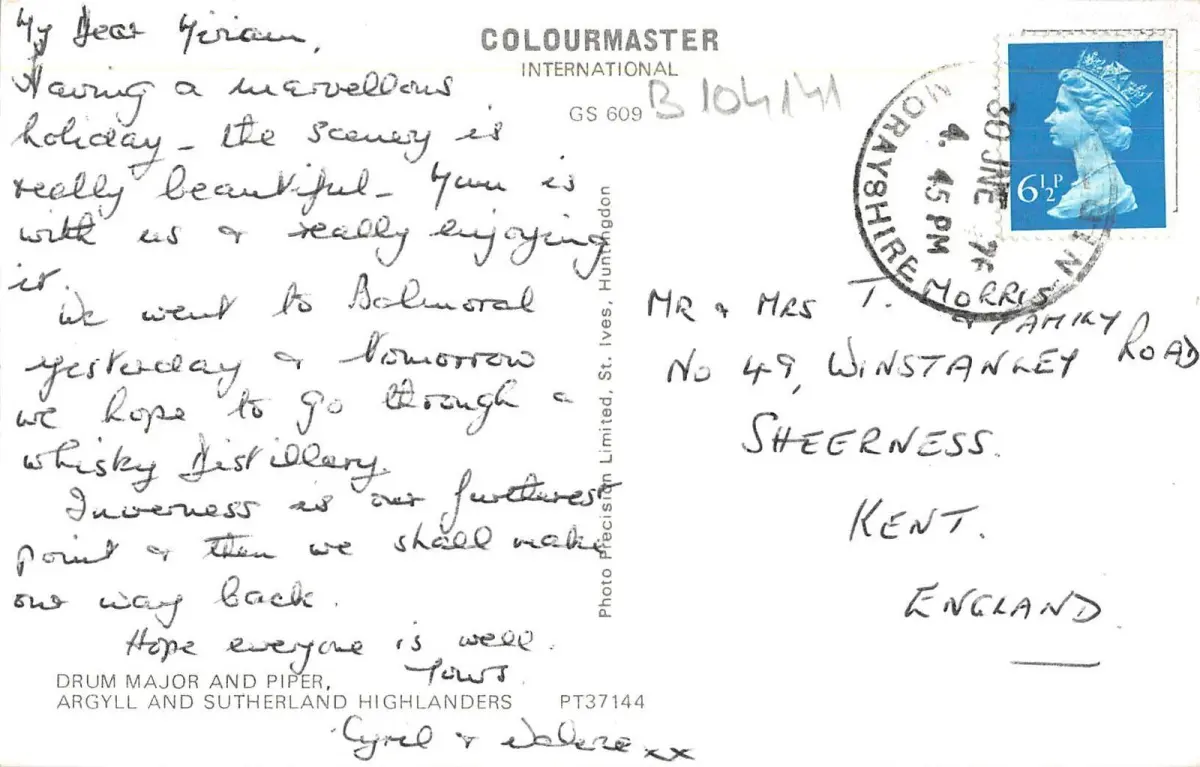 My Dear Miriam,
Having a marvellous
holiday - the scenery is
really beautiful - Mum is
with us & really enjoying
it.
We went to Balmoral
yesterday & tomorrow
we hope to go through a
whisky distillery.
Inverness is our furtherest
point & then we shall make
our way back.
Hope everyone is well.
Yours
Cyril & xx
DRUM MAJOR AND PIPER,
ARGYLL AND SUTHERLAND HIGHLANDERS PT37144
COLOURMASTER
INTERNATIONAL
GS 609 B 104141
Photo Precision Limited, St. Ives, Huntingdon
MORAYSHIRE
30 JNE 76
4. 45 PM
6½P
MR & MRS T. MORRIS
& FAMILY
No 49, WINSTANLEY ROAD
SHEERNESS.
KENT.
ENGLAND